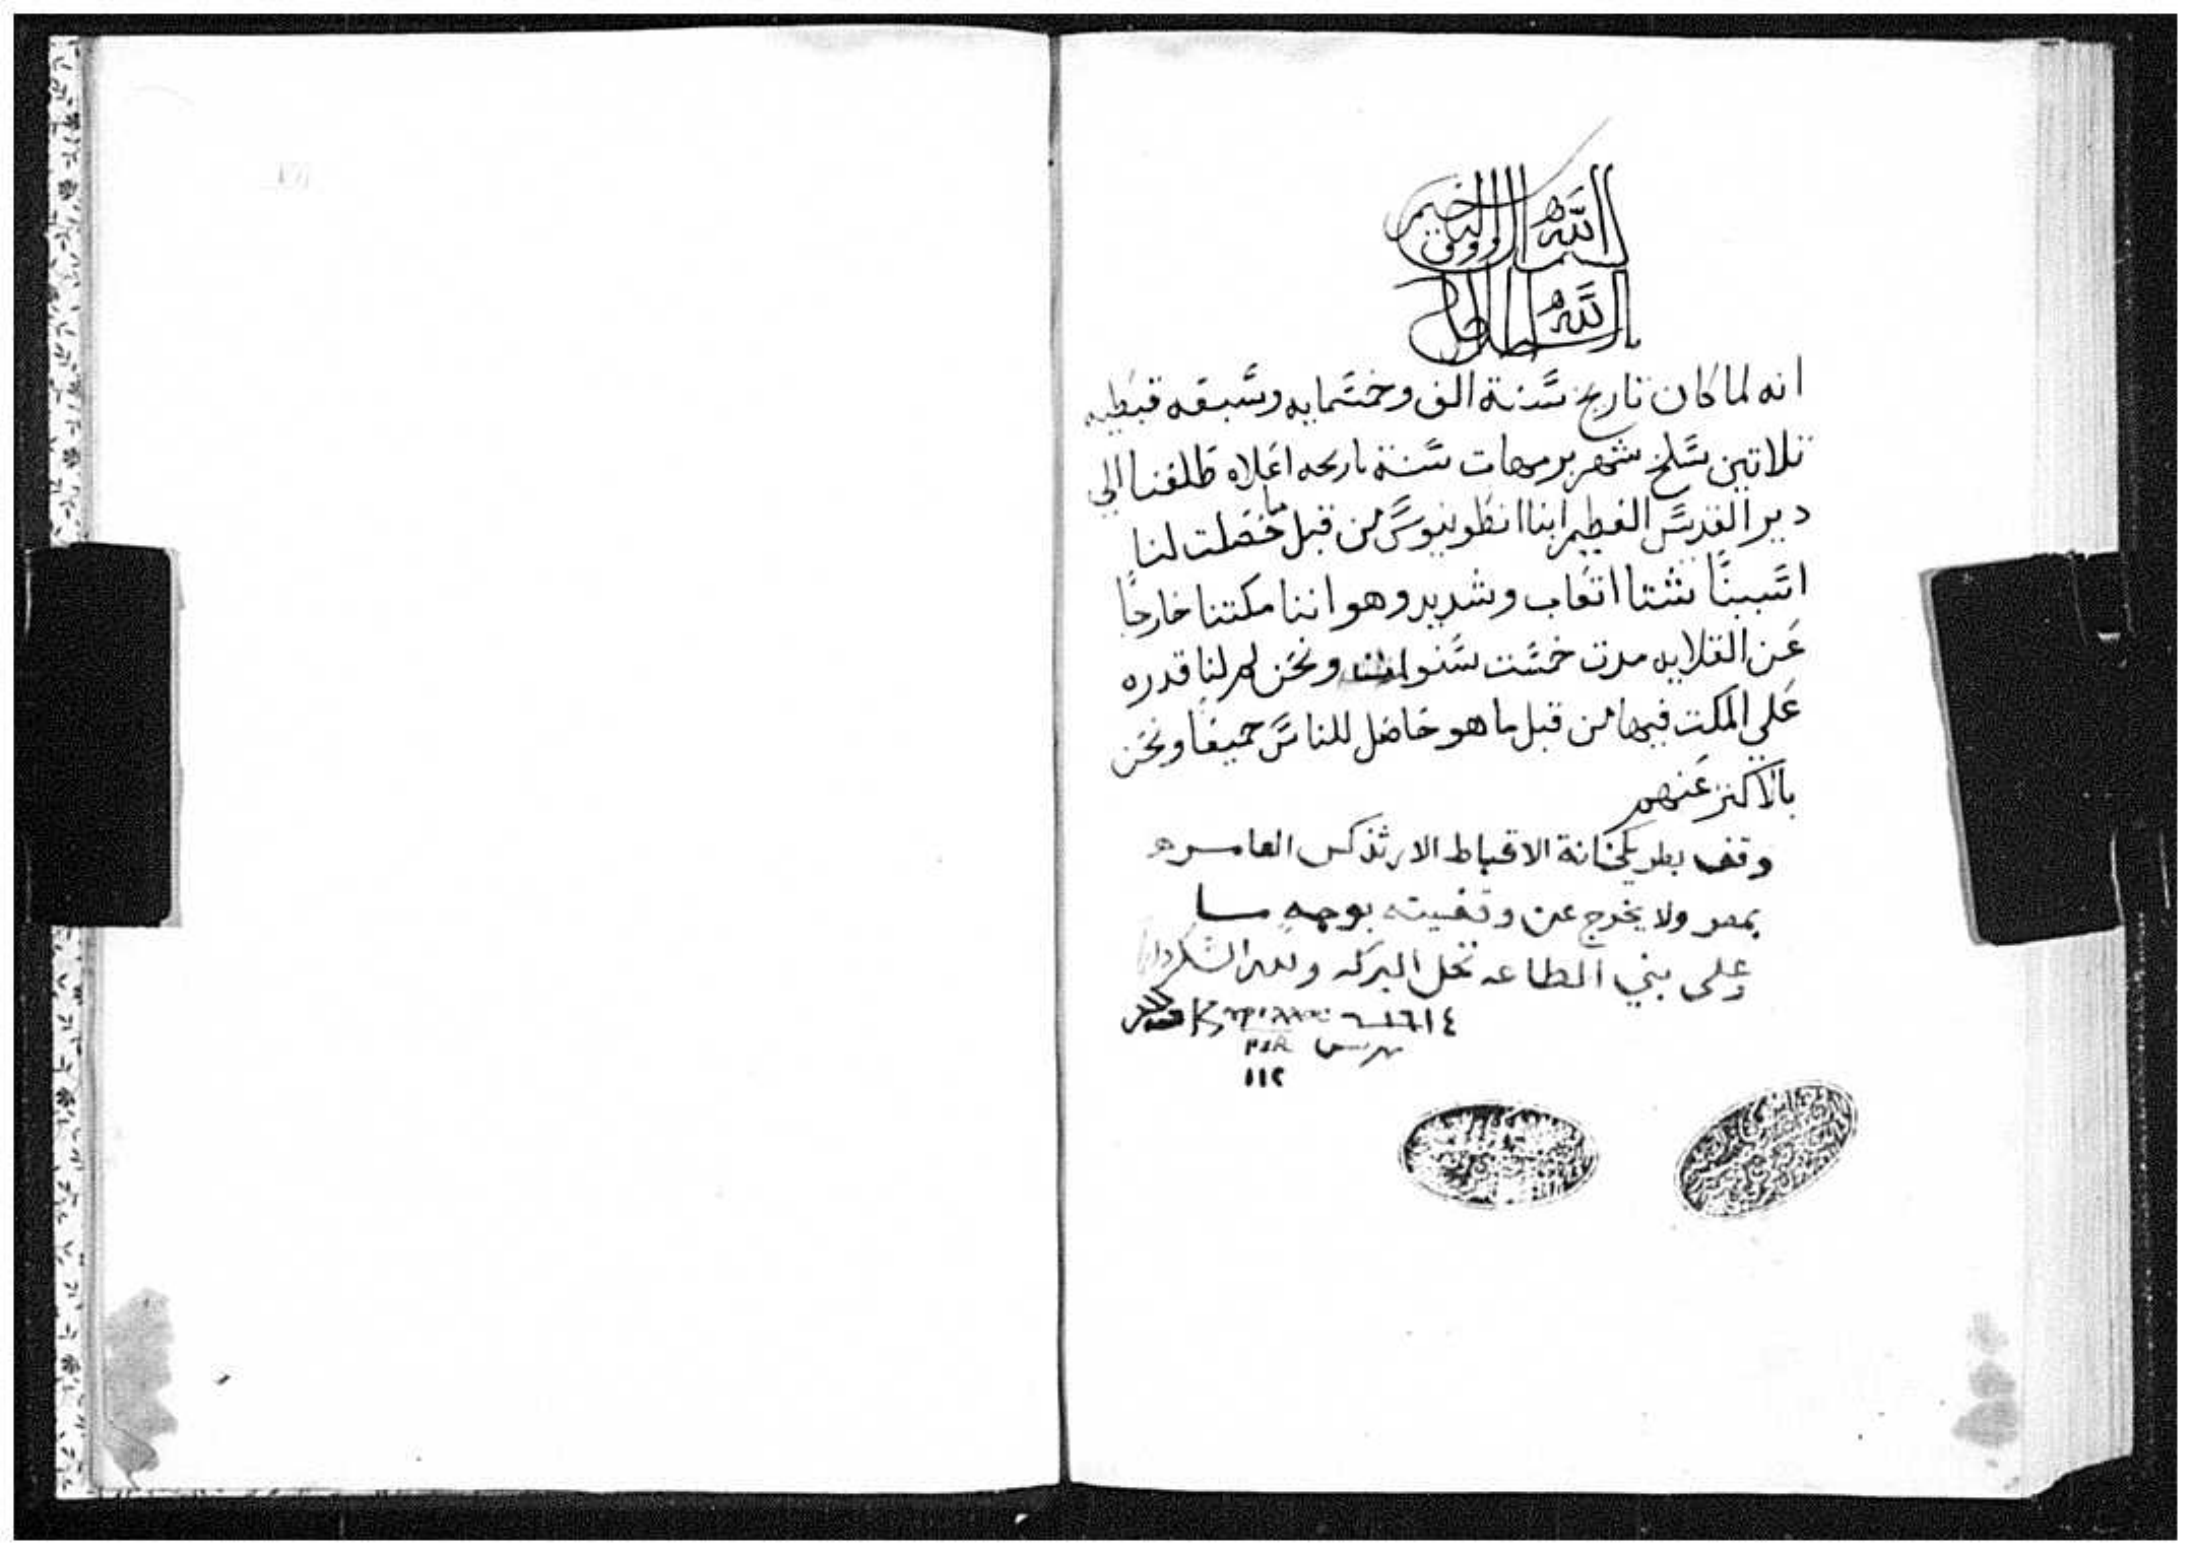 بسم الله الرووف الرحيم
انه لما كان تاريخ سنة الف وخمسمايه وسبعه قبطيه
تلاتين سلخ شهر برمهات سنة تاريخه اعلاه طلعنا الي
دير القديس العظيم ابنا انطونيوس من قبل ما حصلت لنا
اسبببًا شتا اتعاب وشديد وهو اننا مكتنا خارجًا
عن القلايه مدت خمست سنوات ونحن لم لنا قدره
علي المكت فيها من قبل ما هو حاصل للناس جميعًا ونحن
بالاكتر عنهم
وقف بطريكخانة الاقباط الارثذكس العامره
بمصر ولا يخرج عن وقفيته بوجهٍ ما
وعلى بني الطاعه تحل البركه ولله الشكر دايما
١٦١٤
١١٢